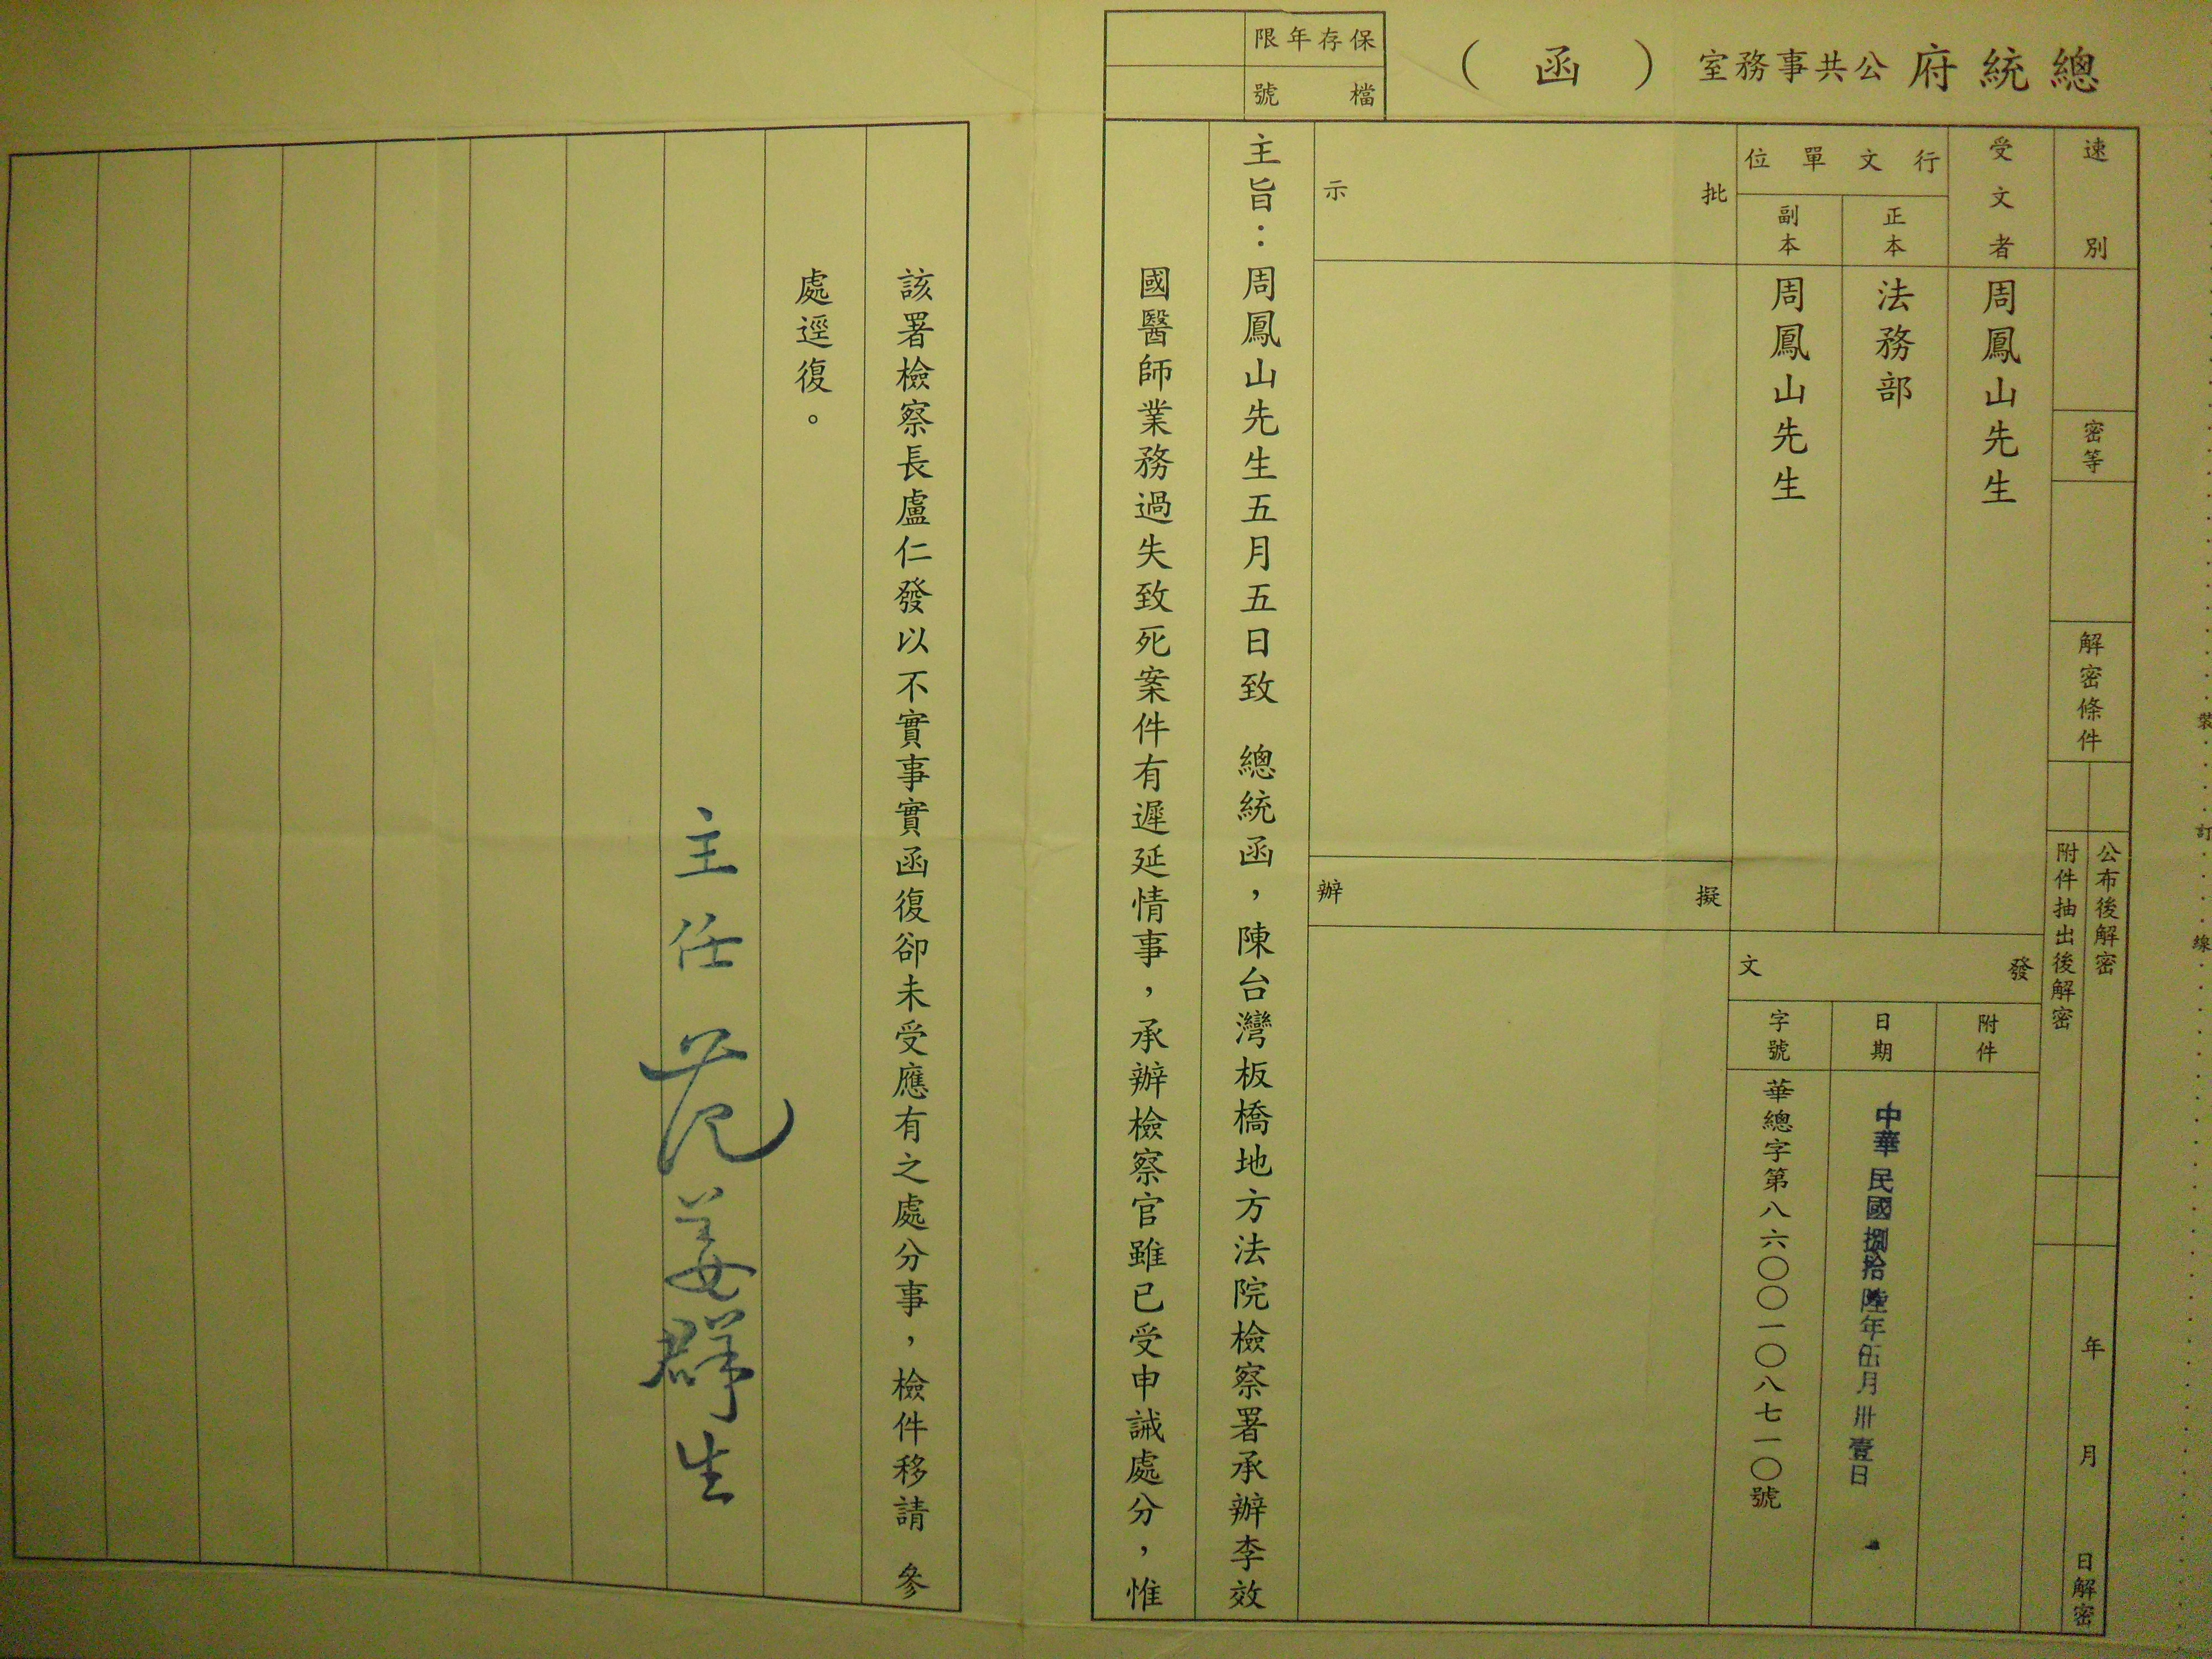 總統府公共事務室（函）
保存年限
檔號
速別
密等
解密條件
公布後解密
附件抽出後解密
年月日解密
受文者
周鳳山先生
行文單位
正本
法務部
副本
周鳳山先生
發文
附件
日期
中華民國捌拾陸年伍月卅壹日
字號
華總字第八六〇〇一〇八七一〇號
批示
擬辦
主旨：周鳳山先生五月五日致　總統函，陳台灣板橋地方法院檢察署承辦李效
國醫師業務過失致死案件有遲延情事，承辦檢察官雖已受申誡處分，惟
該署檢察長盧仁發以不實事實函復卻未受應有之處分事，檢件移請　參
處逕復。
主任 范姜群生
裝訂線